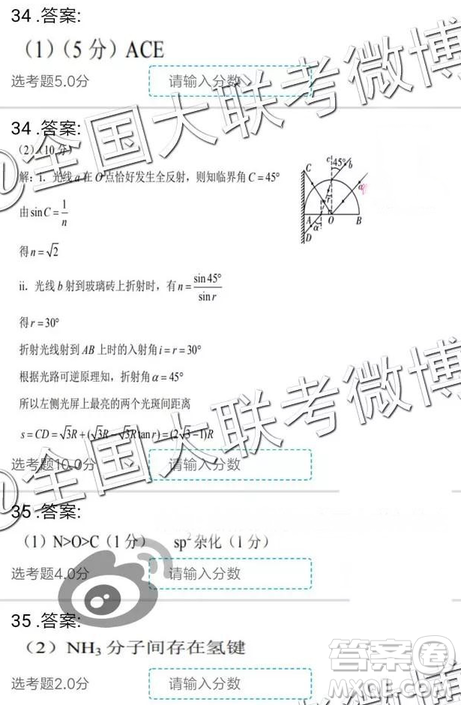 34 .答案:
（1）（5 分）ACE
选考题5.0分
请输入分数
34 .答案:
（2）（10分）
解：i．光线 a 在 O 点恰好发生全反射，则知临界角 C = 45°
由 sin C = 1/n
得 n = √2
ii．光线 b 射到玻璃砖上折射时，有 n = sin 45°/sin r
得 r = 30°
折射光线射到 AB 上时的入射角 i = r = 30°
根据光路可逆原理知，折射角 α = 45°
所以左侧光屏上最亮的两个光斑间距离
s = CD = √3R + (√3R − √3R tan r) = (2√3 −1)R
C
c
45°
b
a
r
i
α
A
O
B
D
选考题10.0分
请输入分数
35 .答案:
（1）N>O>C（1 分） sp²杂化（1 分）
选考题4.0分
请输入分数
35 .答案:
（2）NH₃ 分子间存在氢键
选考题2.0分
请输入分数
@全国大联考微博
@全国大联考微博
答案圈
MXQE.COM